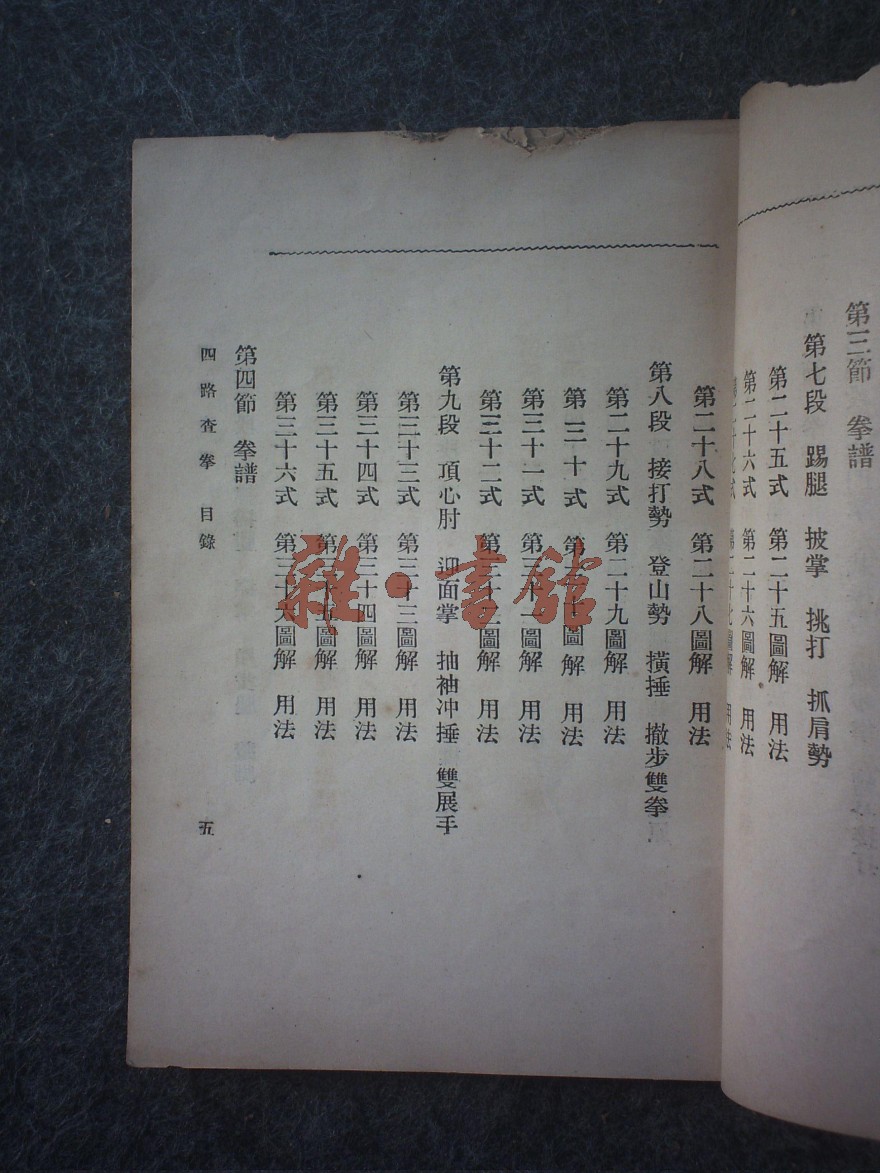 第三節　拳譜
第七段　踢腿　披掌　挑打　抓肩勢
第二十五式　第二十五圖解　用法
第二十六式　第二十六圖解　用法
第二十七式　第二十七圖解　用法
第二十八式　第二十八圖解　用法
第八段　接打勢　登山勢　橫捶　撤步雙拳
第二十九式　第二十九圖解　用法
第三十式　第三十圖解　用法
第三十一式　第三十一圖解　用法
第三十二式　第三十二圖解　用法
第九段　頂心肘　迎面掌　抽袖冲捶　雙展手
第三十三式　第三十三圖解　用法
第三十四式　第三十四圖解　用法
第三十五式　第三十五圖解　用法
第三十六式　第三十六圖解　用法
第四節　拳譜
四路查拳　目錄
五
雜·書館